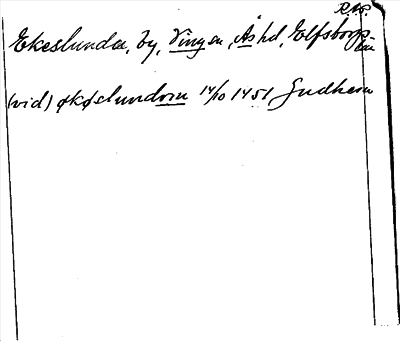 RAP.
Ekeslunda, by, Vingen, Ås hd, Elfsborgs län
(vid) økøslundom 14/10 1451 Gudhem